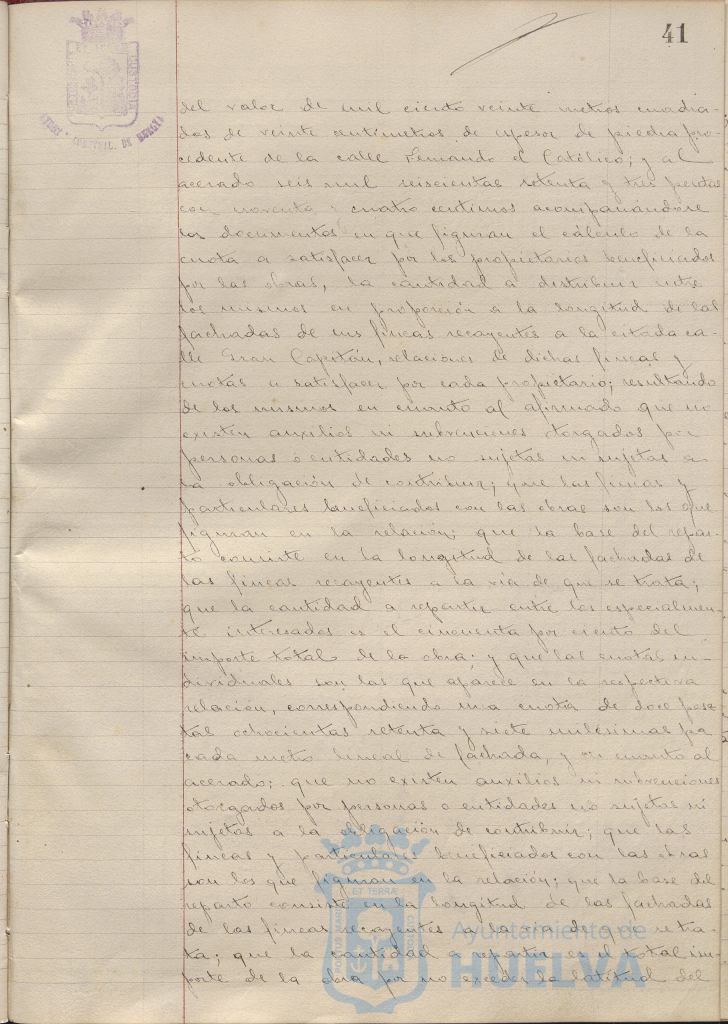 41
del valor de mil ciento veinte metros cuadra-
dos de veinte centímetros de espesor de piedra pro-
cedente de la calle Fernando el Católico; y al
acerado seis mil seiscientas setenta y tres pesetas
con noventa y cuatro centimos acompañándose
los documentos en que figuran el cálculo de la
cuota a satisfacer por los propietarios beneficiados
por las obras, la cantidad a distribuir entre
los mismos en proporción a la longitud de las
fachadas de sus fincas recayentes a la citada ca-
lle Gran Capitán, relaciones de dichas fincas y
cuotas a satisfacer por cada propietario; resultando
de los mismos en cuanto al afirmado que no
existen auxilios ni subvenciones otorgados por
personas o entidades no sujetas ni sujetas a
la obligación de contribuir; que las fincas y
particulares beneficiados con las obras son los que
figuran en la relación; que la base del repar-
to consiste en la longitud de las fachadas de
las fincas recayentes a la via de que se trata;
que la cantidad a repartir entre los especialmen-
te interesados es el cincuenta por ciento del
importe total de la obra; y que las cuotas in-
dividuales son las que aparece en la respectiva
relación, correspondiendo una cuota de doce pese-
tas ochocientas setenta y siete milesimas por
cada metro lineal de fachada, y en cuanto al
acerado; que no existen auxilios ni subvenciones
otorgados por personas o entidades no sujetas ni
sujetas a la obligación de contribuir; que las
fincas y particulares beneficiados con las obras
son los que figuran en la relación; que la base del
reparto consiste en la longitud de las fachadas
de las fincas recayentes a la via de que se tra-
ta; que la cantidad a repartir es el total im-
porte de la obra por no exceder la latitud del
Ayuntamiento de
HUELVA